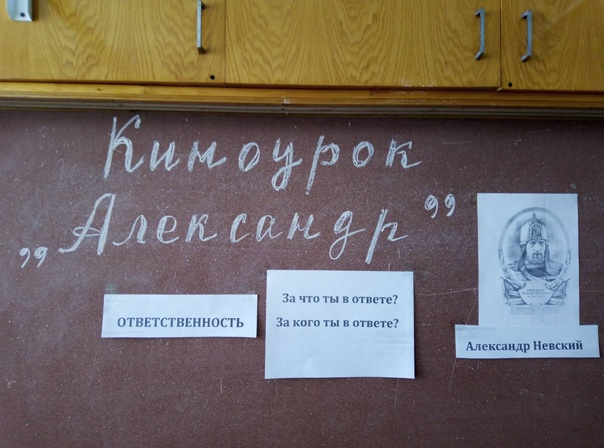 Киноурок
„Александр”
ОТВЕТСТВЕННОСТЬ
За что ты в ответе?
За кого ты в ответе?
Александр Невский